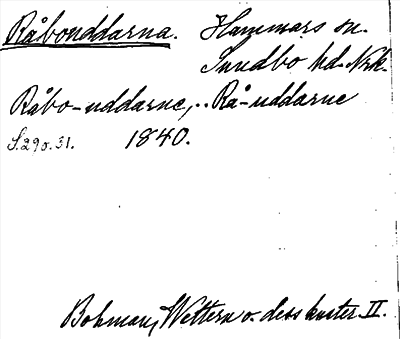 Råbouddarna. Hammars sn.
Sundbo hd. Nrk.
Råbo-uddarne,.. Rå-uddarne
S. 290. 31. 1840.
Bohman, Wettern o. dess kuster II.